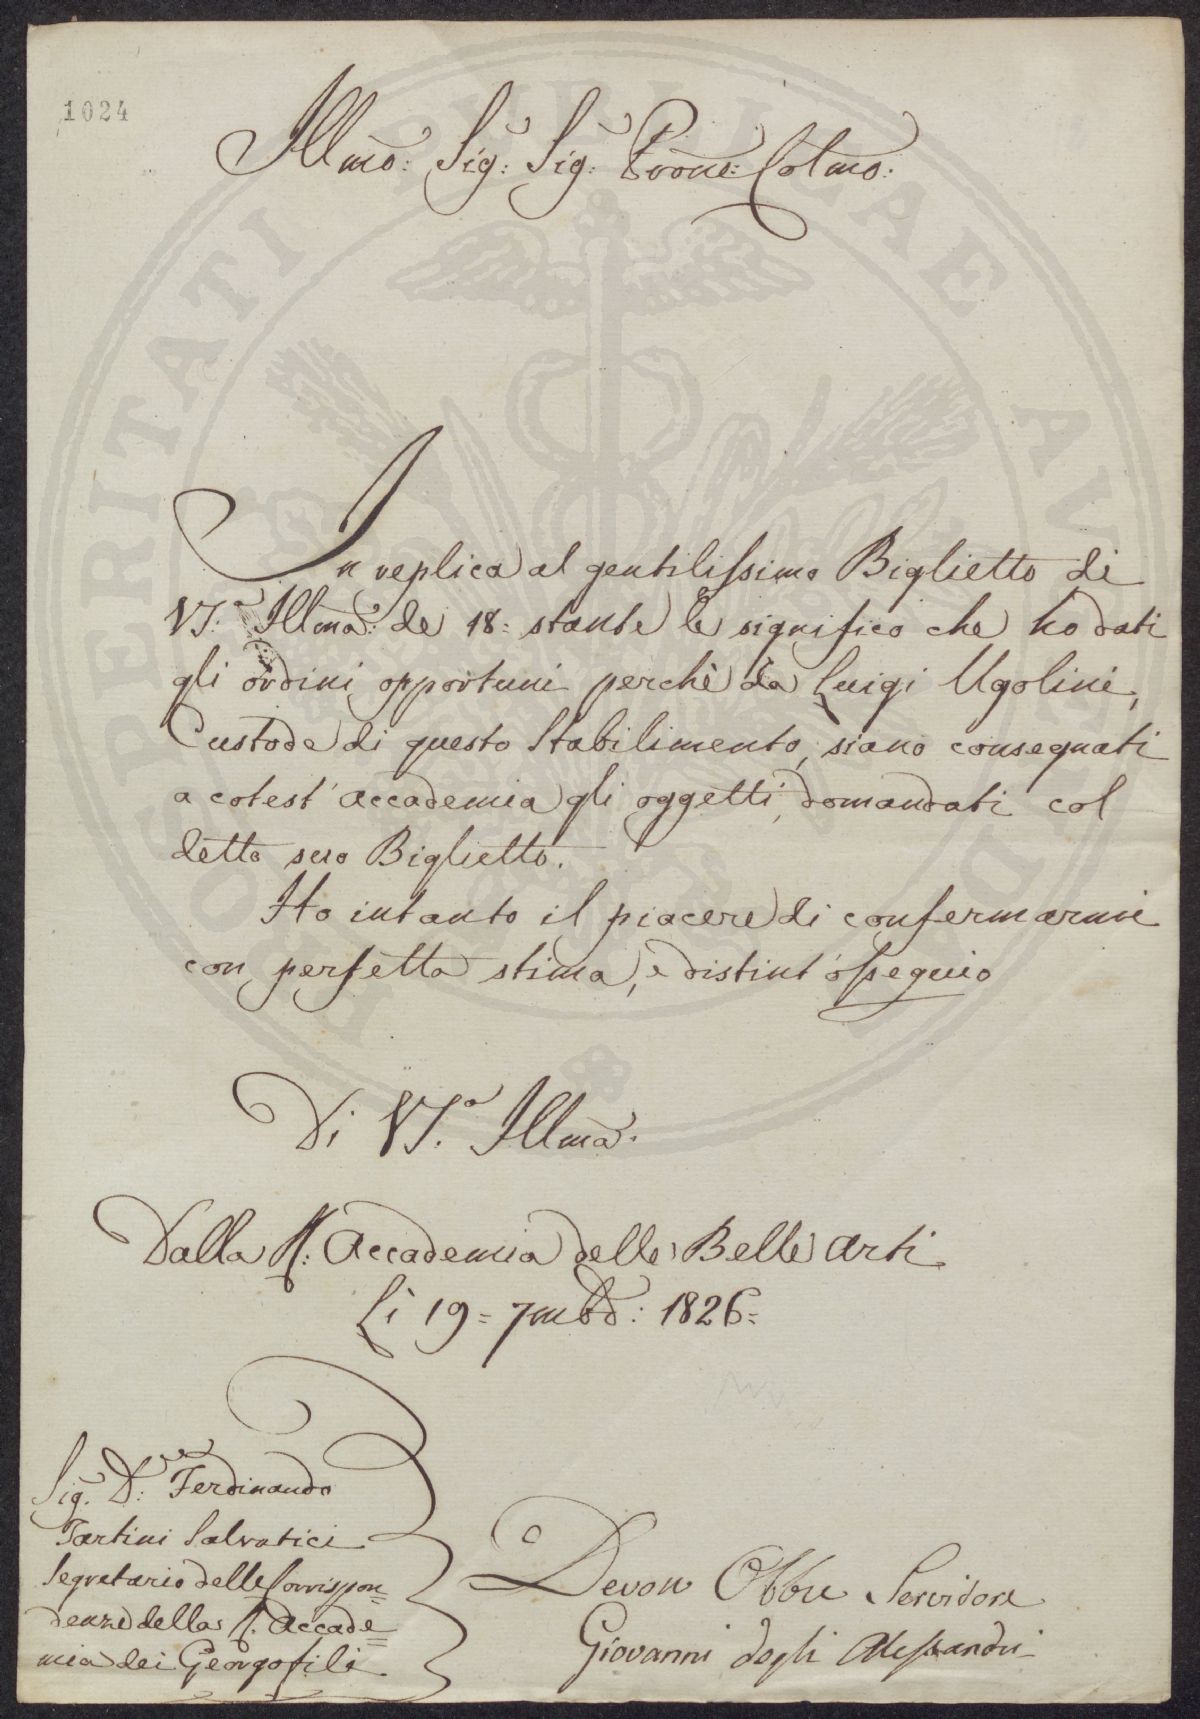 1024
Illmo: Sig: Sig: Prone: Colmo:
In replica al gentilissimo Biglietto di
VS.a Illma: de 18: stante le significo che ho dati
gli ordini opportuni perchè da Luigi Ugolini,
Custode di questo Stabilimento, siano consegnati
a cotest' Accademia gli oggetti, domandati col
detto suo Biglietto.
Ho intanto il piacere di confermarmi
con perfetta stima, e distint' ossequio
Di VS.a Illma:
Dalla R: Accademia delle Belle Arti
Li 19= 7mbre: 1826=
Sig. D:re Ferdinando
Tartini Salvatici
Segretario delle Corrispon=
denze della R. Accade=
mia dei Georgofili
Devon Obbu Servidore
Giovanni degli Alessandri
PROSPERITATI PUBLICAE AUGENDAE